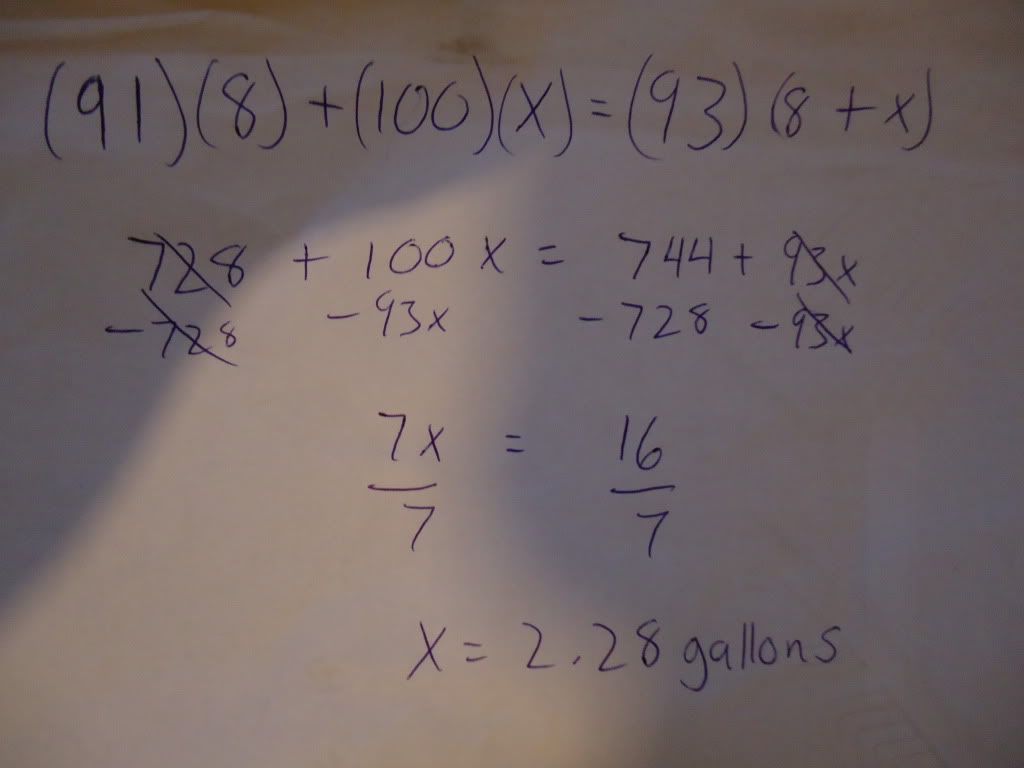 (91)(8) + (100)(x) = (93)(8 + x)
728 + 100x = 744 + 93x
-728 -93x -728 -93x
7x = 16
7 7
x = 2.28 gallons